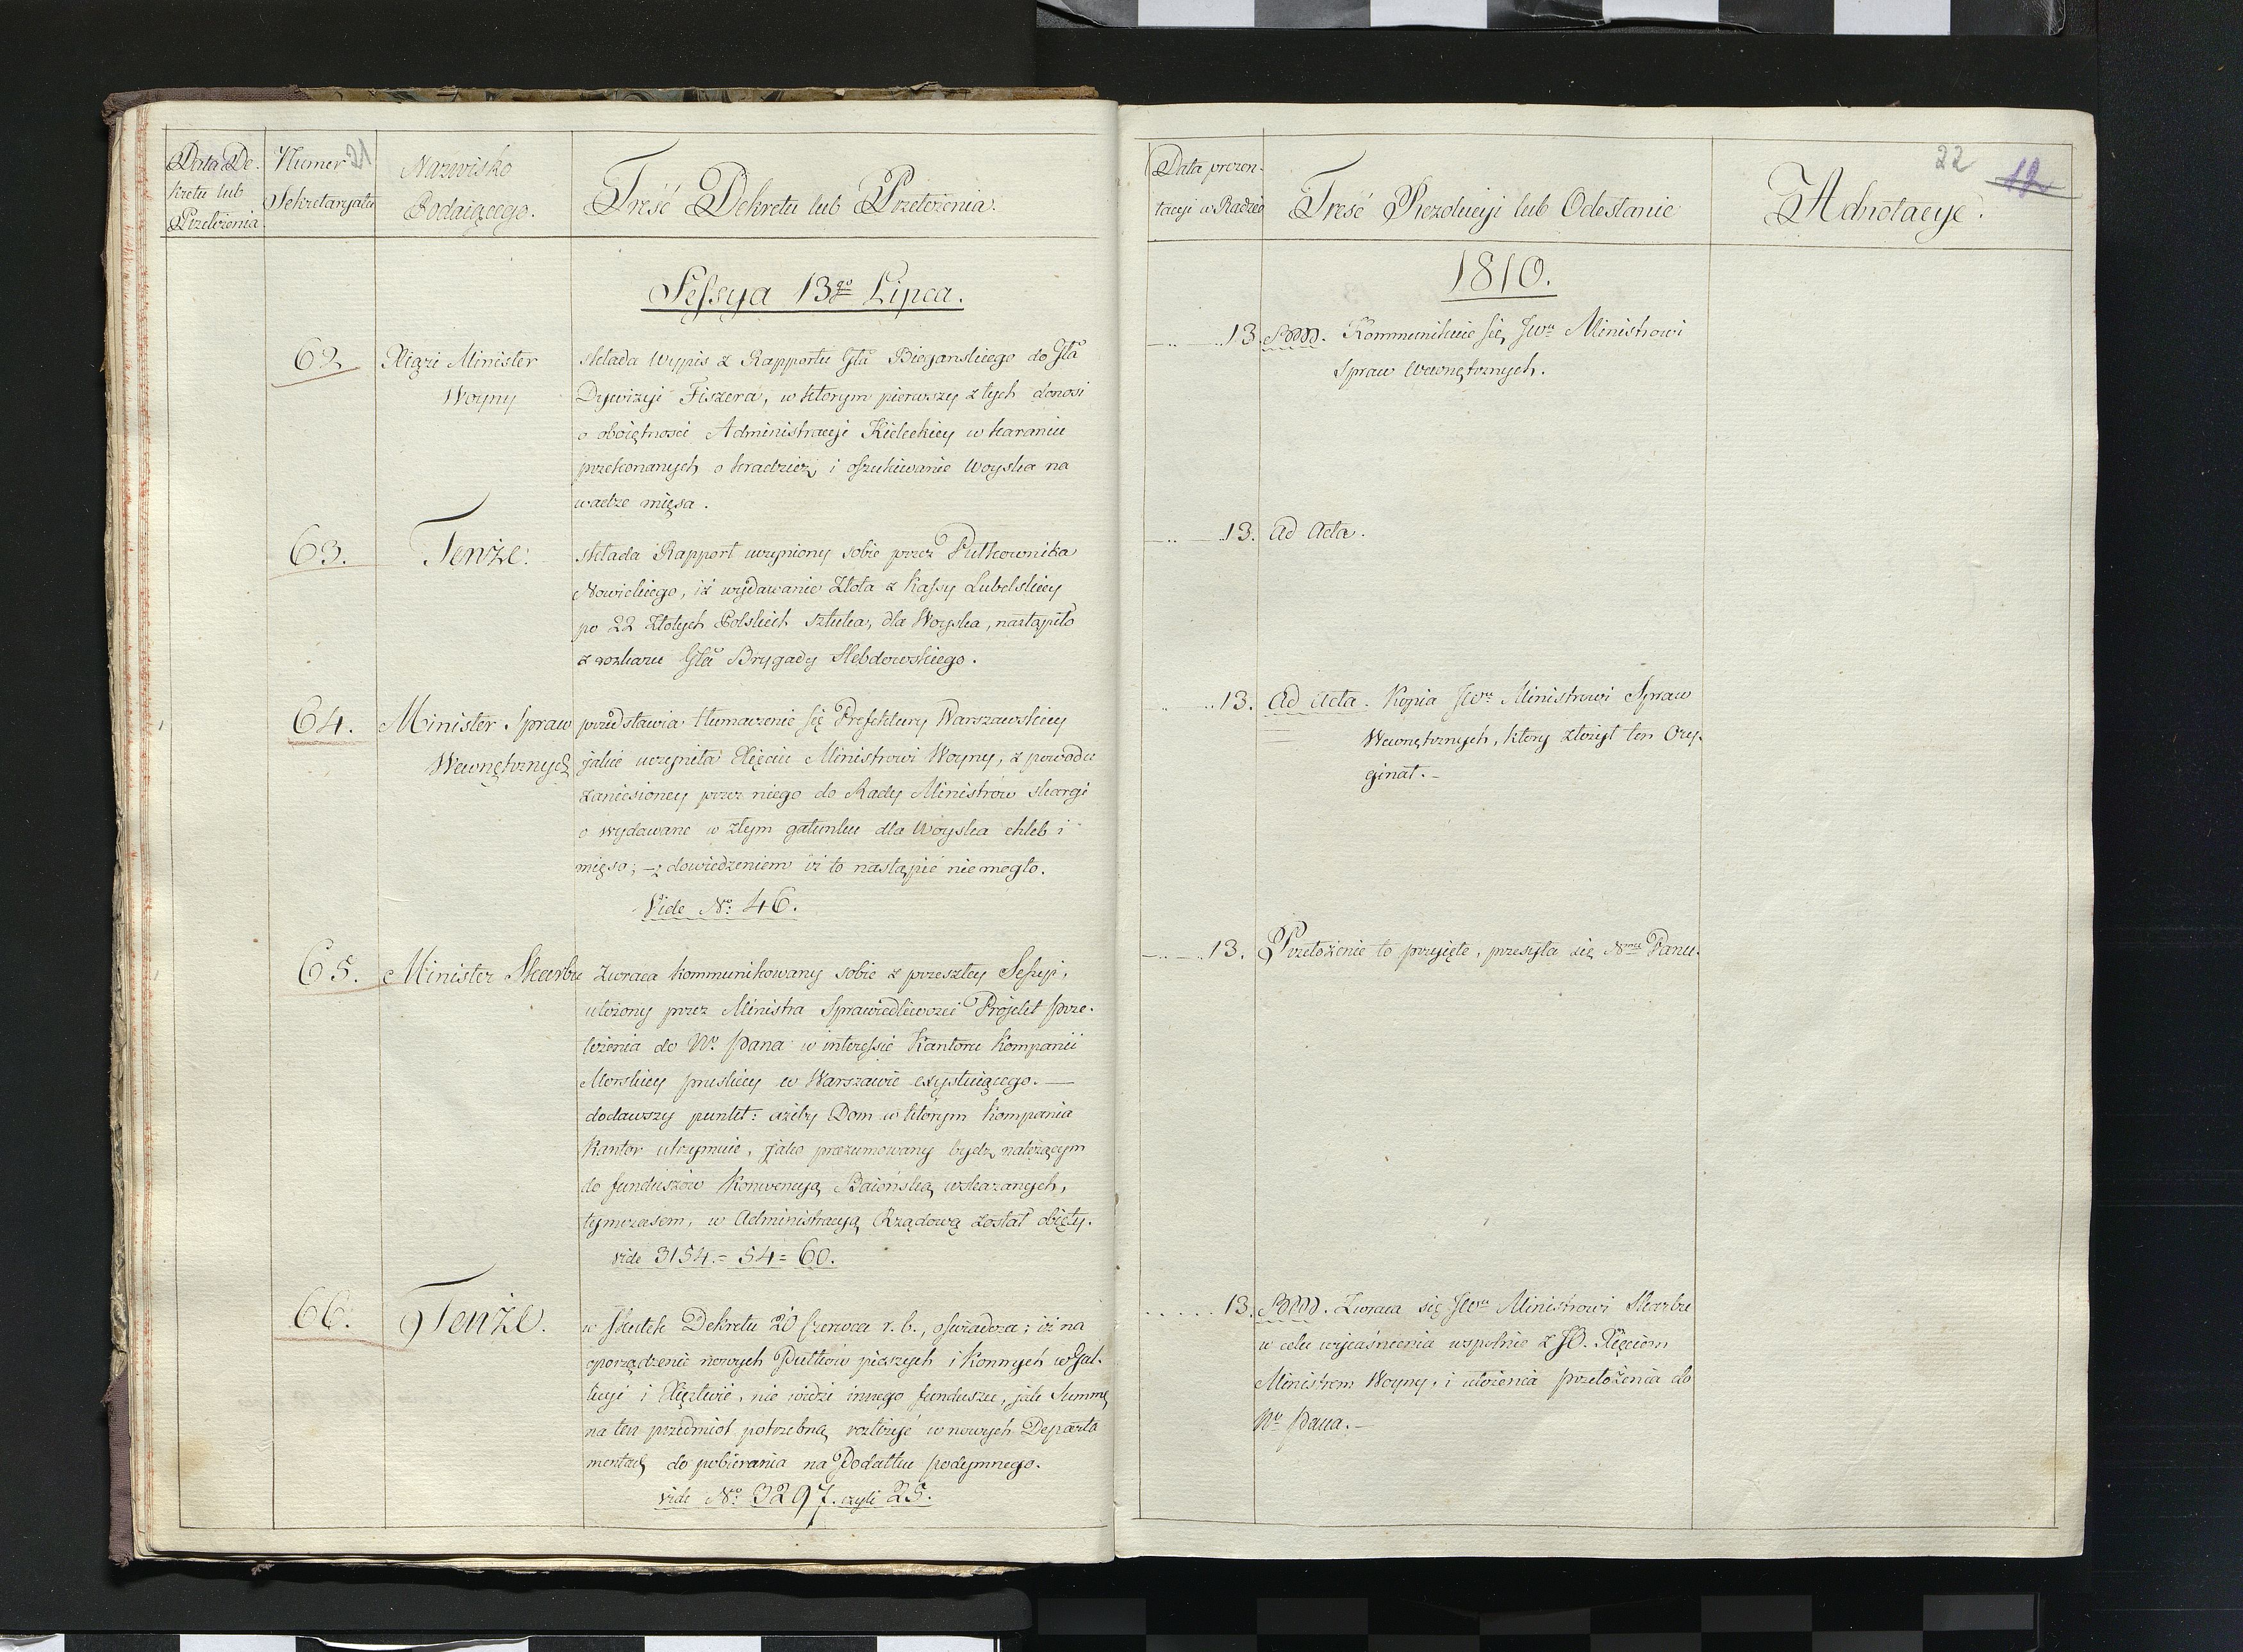 Data De-
kretu lub
Przełożenia
Numer
Sekretaryatu
21
Nazwisko
Podaiącego.
Treść Dekretu lub Przełożenia.
Sessya 13go Lipca.
62
Xiąże Minister
Woyny
składa wypis z Rapportu Gła Bieganskiego do Gła
Dywizyi Fiszera, w ktorym pierwszy z tych donosi
o oboiętnosci Administracyi Kieleckiey w karaniu
przekonanych o kradzież, i oszukiwanie Woyska na
wadze mięsa.
63.
Tenże.
składa Rapport uczyniony sobie przez Pułkownika
Nowickiego, iż wydawanie Złota z Kassy Lubelskiey
po 22 Złotych Polskich sztuka, dla Woyska, nastąpiło
z rozkazu Gła Brygady Hebdowskiego.
64.
Minister Spraw
Wewnętrznych
przedstawia tłumaczenie się Prefektury Warszawskiey
jakie uczyniła Xięciu Ministrowi Woyny, z powodu
zaniesioney przez niego do Rady Ministrów skargi
o wydawane w złym gatunku dla Woyska chleb i
mięso; – z dowiedzeniem iż to nastąpić nie mogło.
Vide No: 46.
65.
Minister Skarbu
zwraca kommunikowany sobie z przeszłey Sessyi,
ułożony przez Ministra Sprawiedliwosci Projekt prze-
łożenia do No Pana w interessie Kantoru Kompanii
Morskiey pruskiey w Warszawie exystuiącego. —
dodawszy punkt: ażeby Dom w którym Kompania
Kantor utrzymuie, jako prezumowany bydź należącym
do funduszów Konwencyą Baiońską wskazanych,
tymczasem, w Administracyą Rządową został obięty.
vide 3154 = 54 = 60.
66.
Tenże.
w skutek Dekretu 20 Czerwca r. b., oswiadcza; iż na
oporządzenie nowych Pułków pieszych i Konnych w Gal-
licyi i Xięztwie, nie widzi innego funduszu, jak Summę
na ten przedmiot potrzebną rozłożyć w nowych Departa
mentach do pobierania na Podatku podymnego.
vide No: 3297. czyli 25.
Data prezen-
tacyi w Radzie
Treść Rezolucyi lub Odesłanie
Adnotacye.
22
12
1810.
13.
Kommunikuie się JWu Ministrowi
Spraw Wewnętrznych.
13.
Ad Acta.
13.
Ad Acta. Kopia JWu Ministrowi Spraw
Wewnętrznych, ktory złożył ten Ory-
ginał. –
13.
Przełożenie to przyięte, przesyła się Nmu Panu.
13.
Zwraca się JWu Ministrowi Skarbu
w celu wyiaśnienia wspolnie z JO. Xięciem
Ministrem Woyny, i ułożenia przełożenia do
No Pana. –